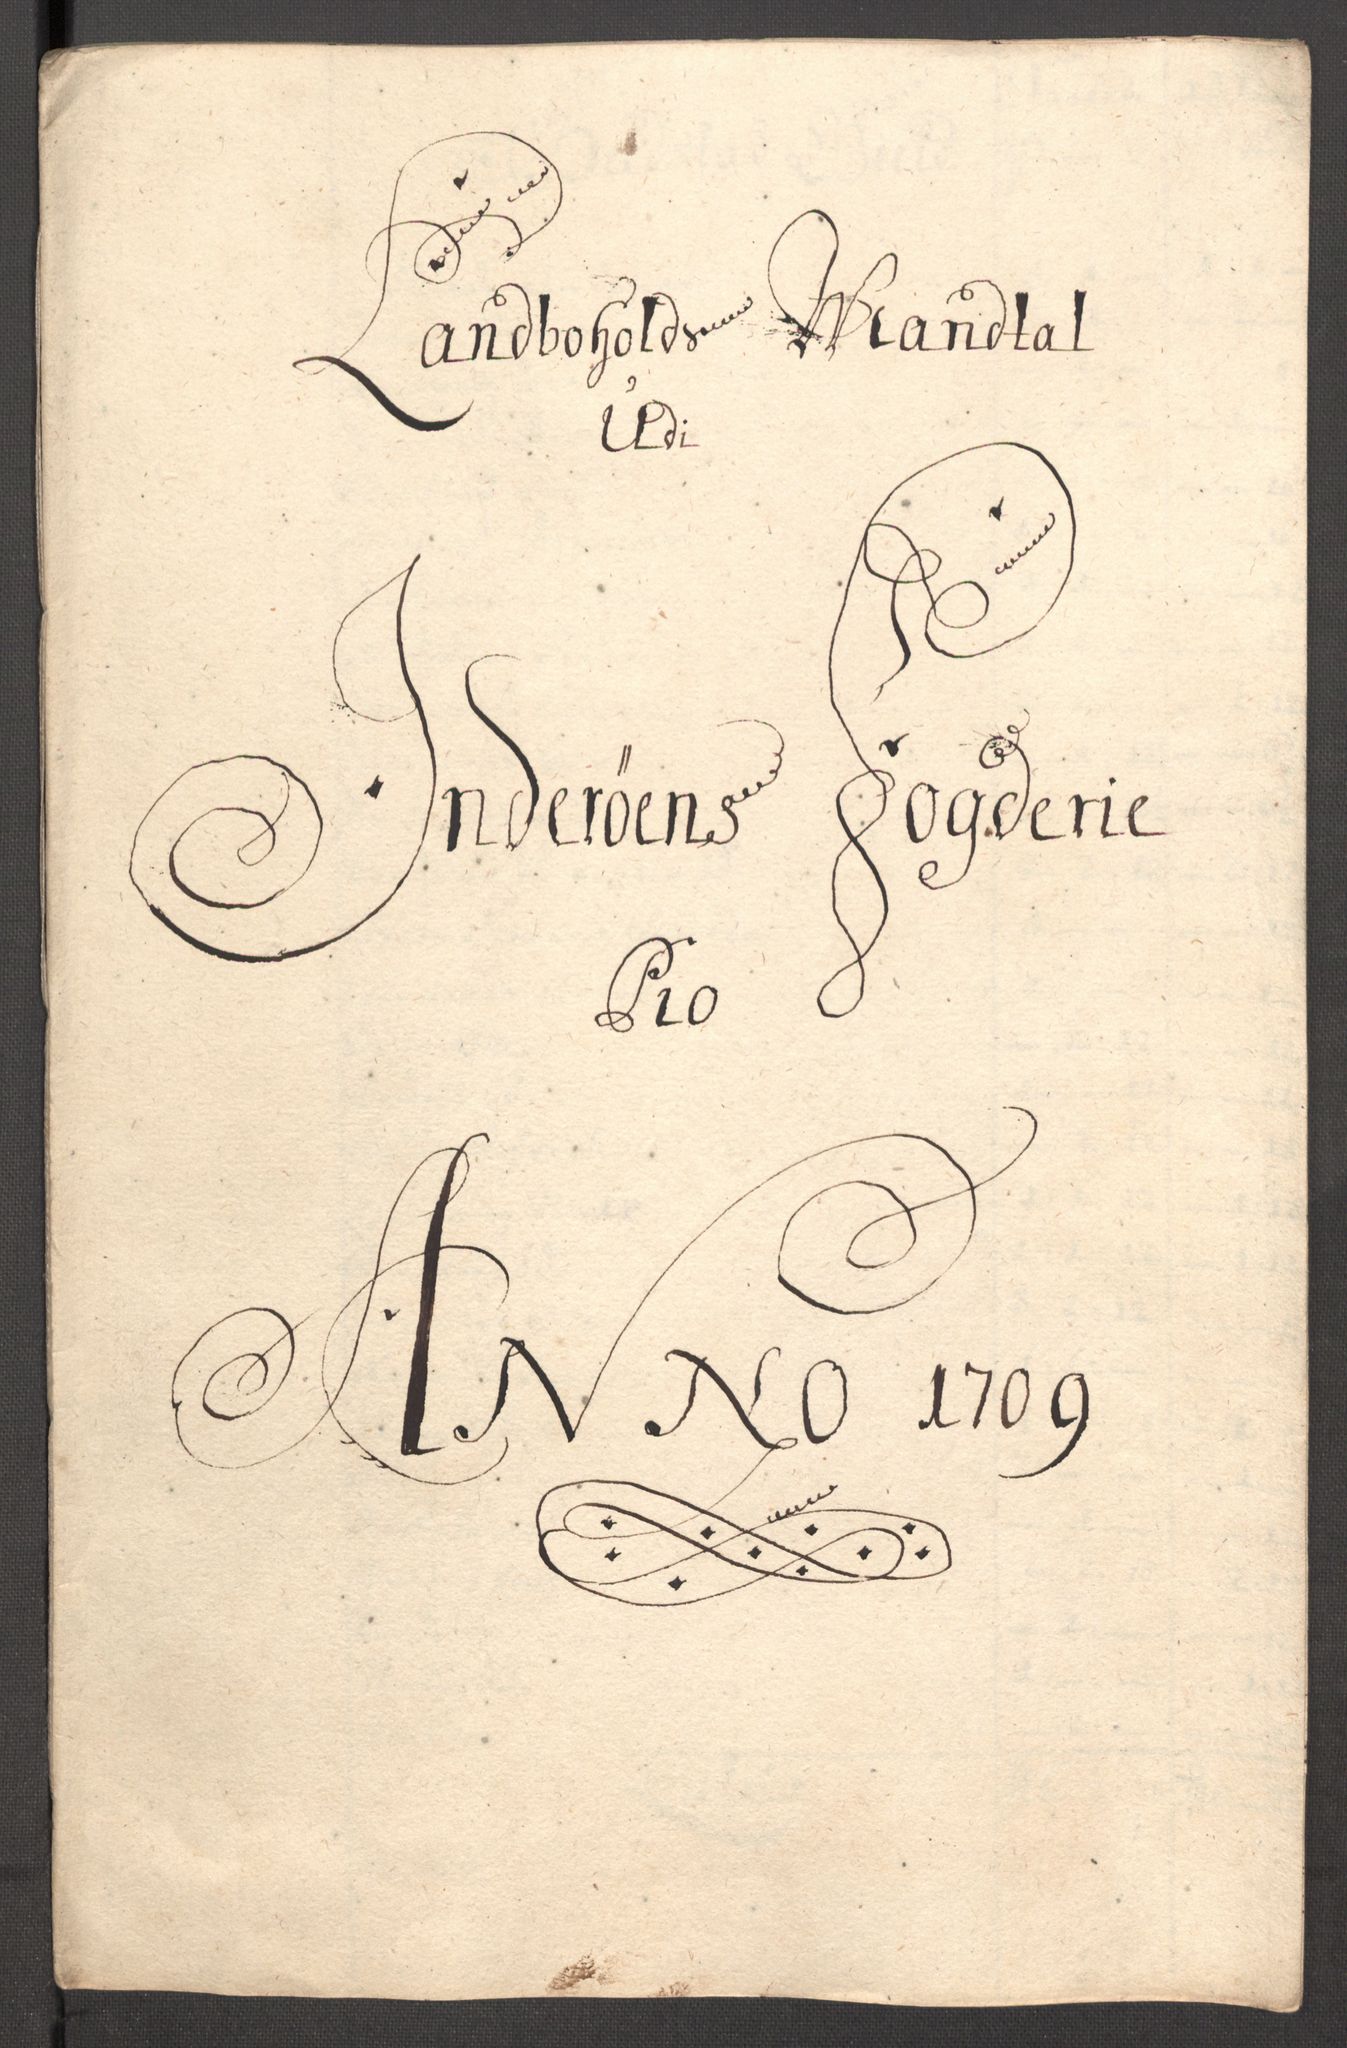 Landboholds Mandtal
Udi
Inderöens Fogderie
Pro
ANNO 1709